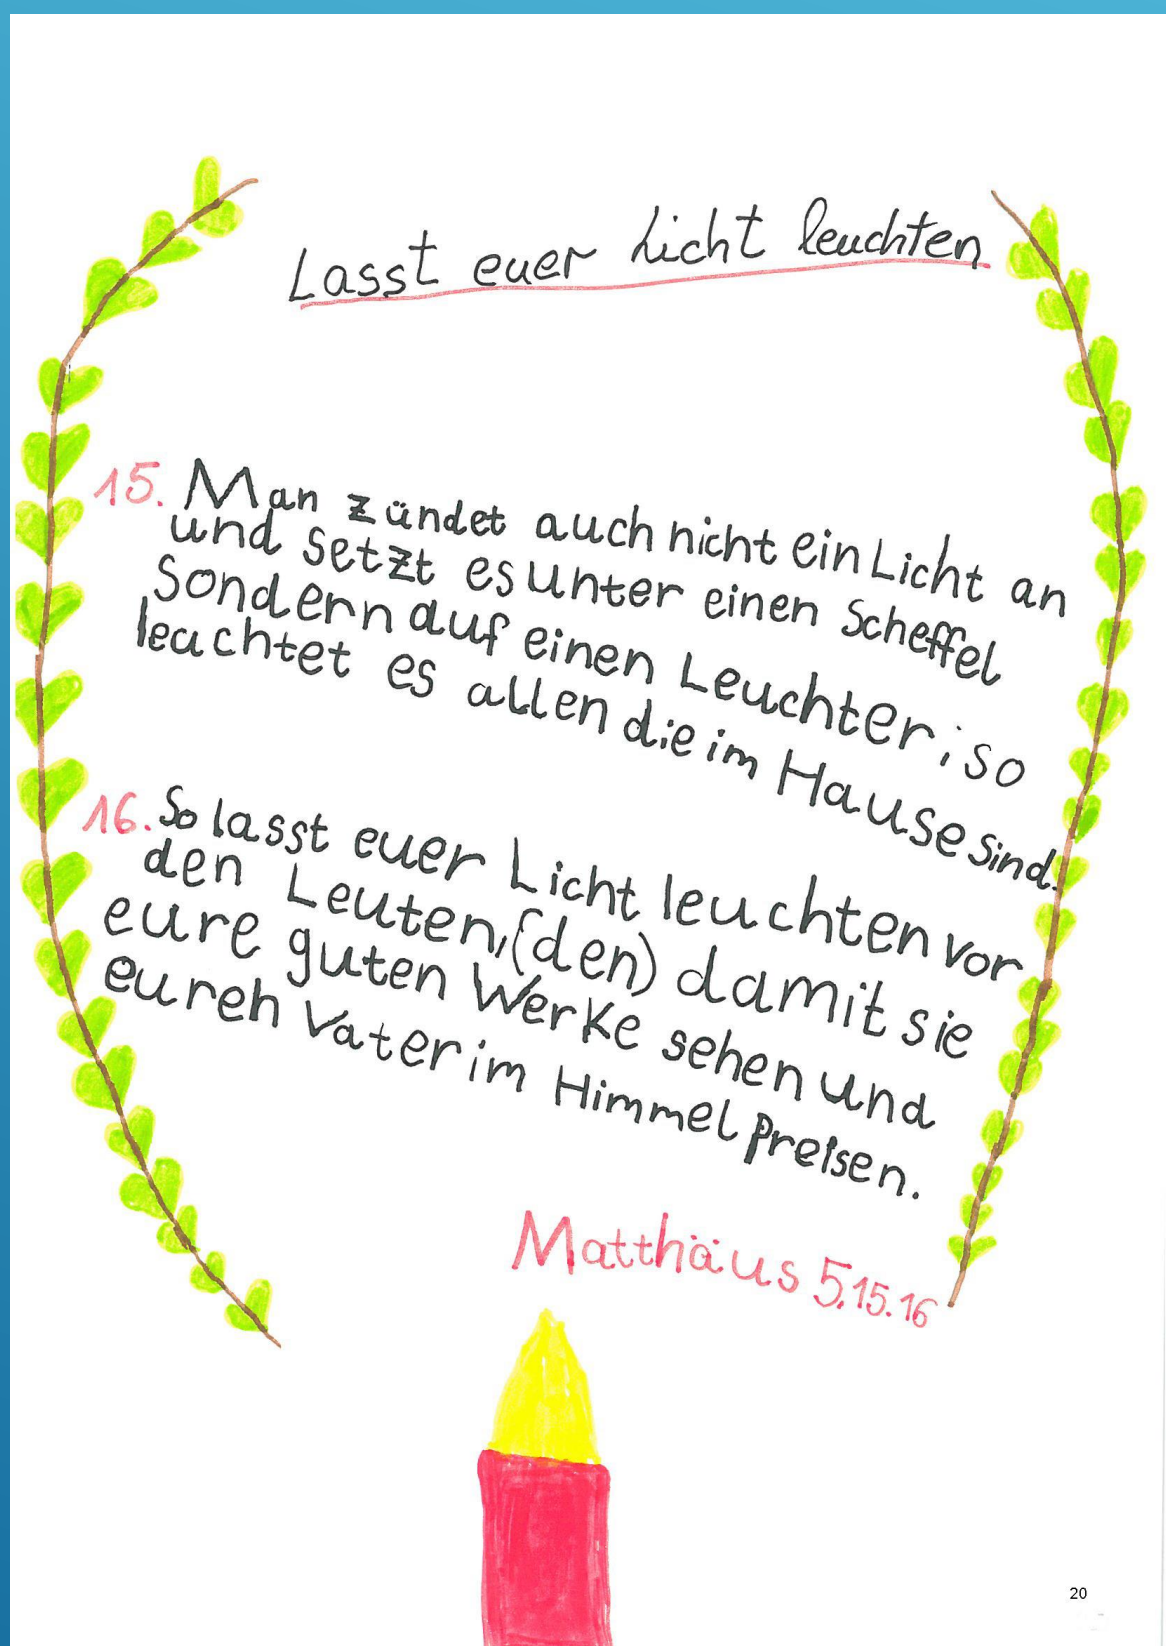 Lasst euer Licht leuchten
15. Man zündet auch nicht ein Licht an
und setzt es unter einen Scheffel
Sondern auf einen Leuchter; so
leuchtet es allen die im Hause sind.
16. So lasst euer Licht leuchten vor
den Leuten, (den) damit sie
eure guten Werke sehen und
eureh Vater im Himmel preisen.
Matthäus 5,15.16
20